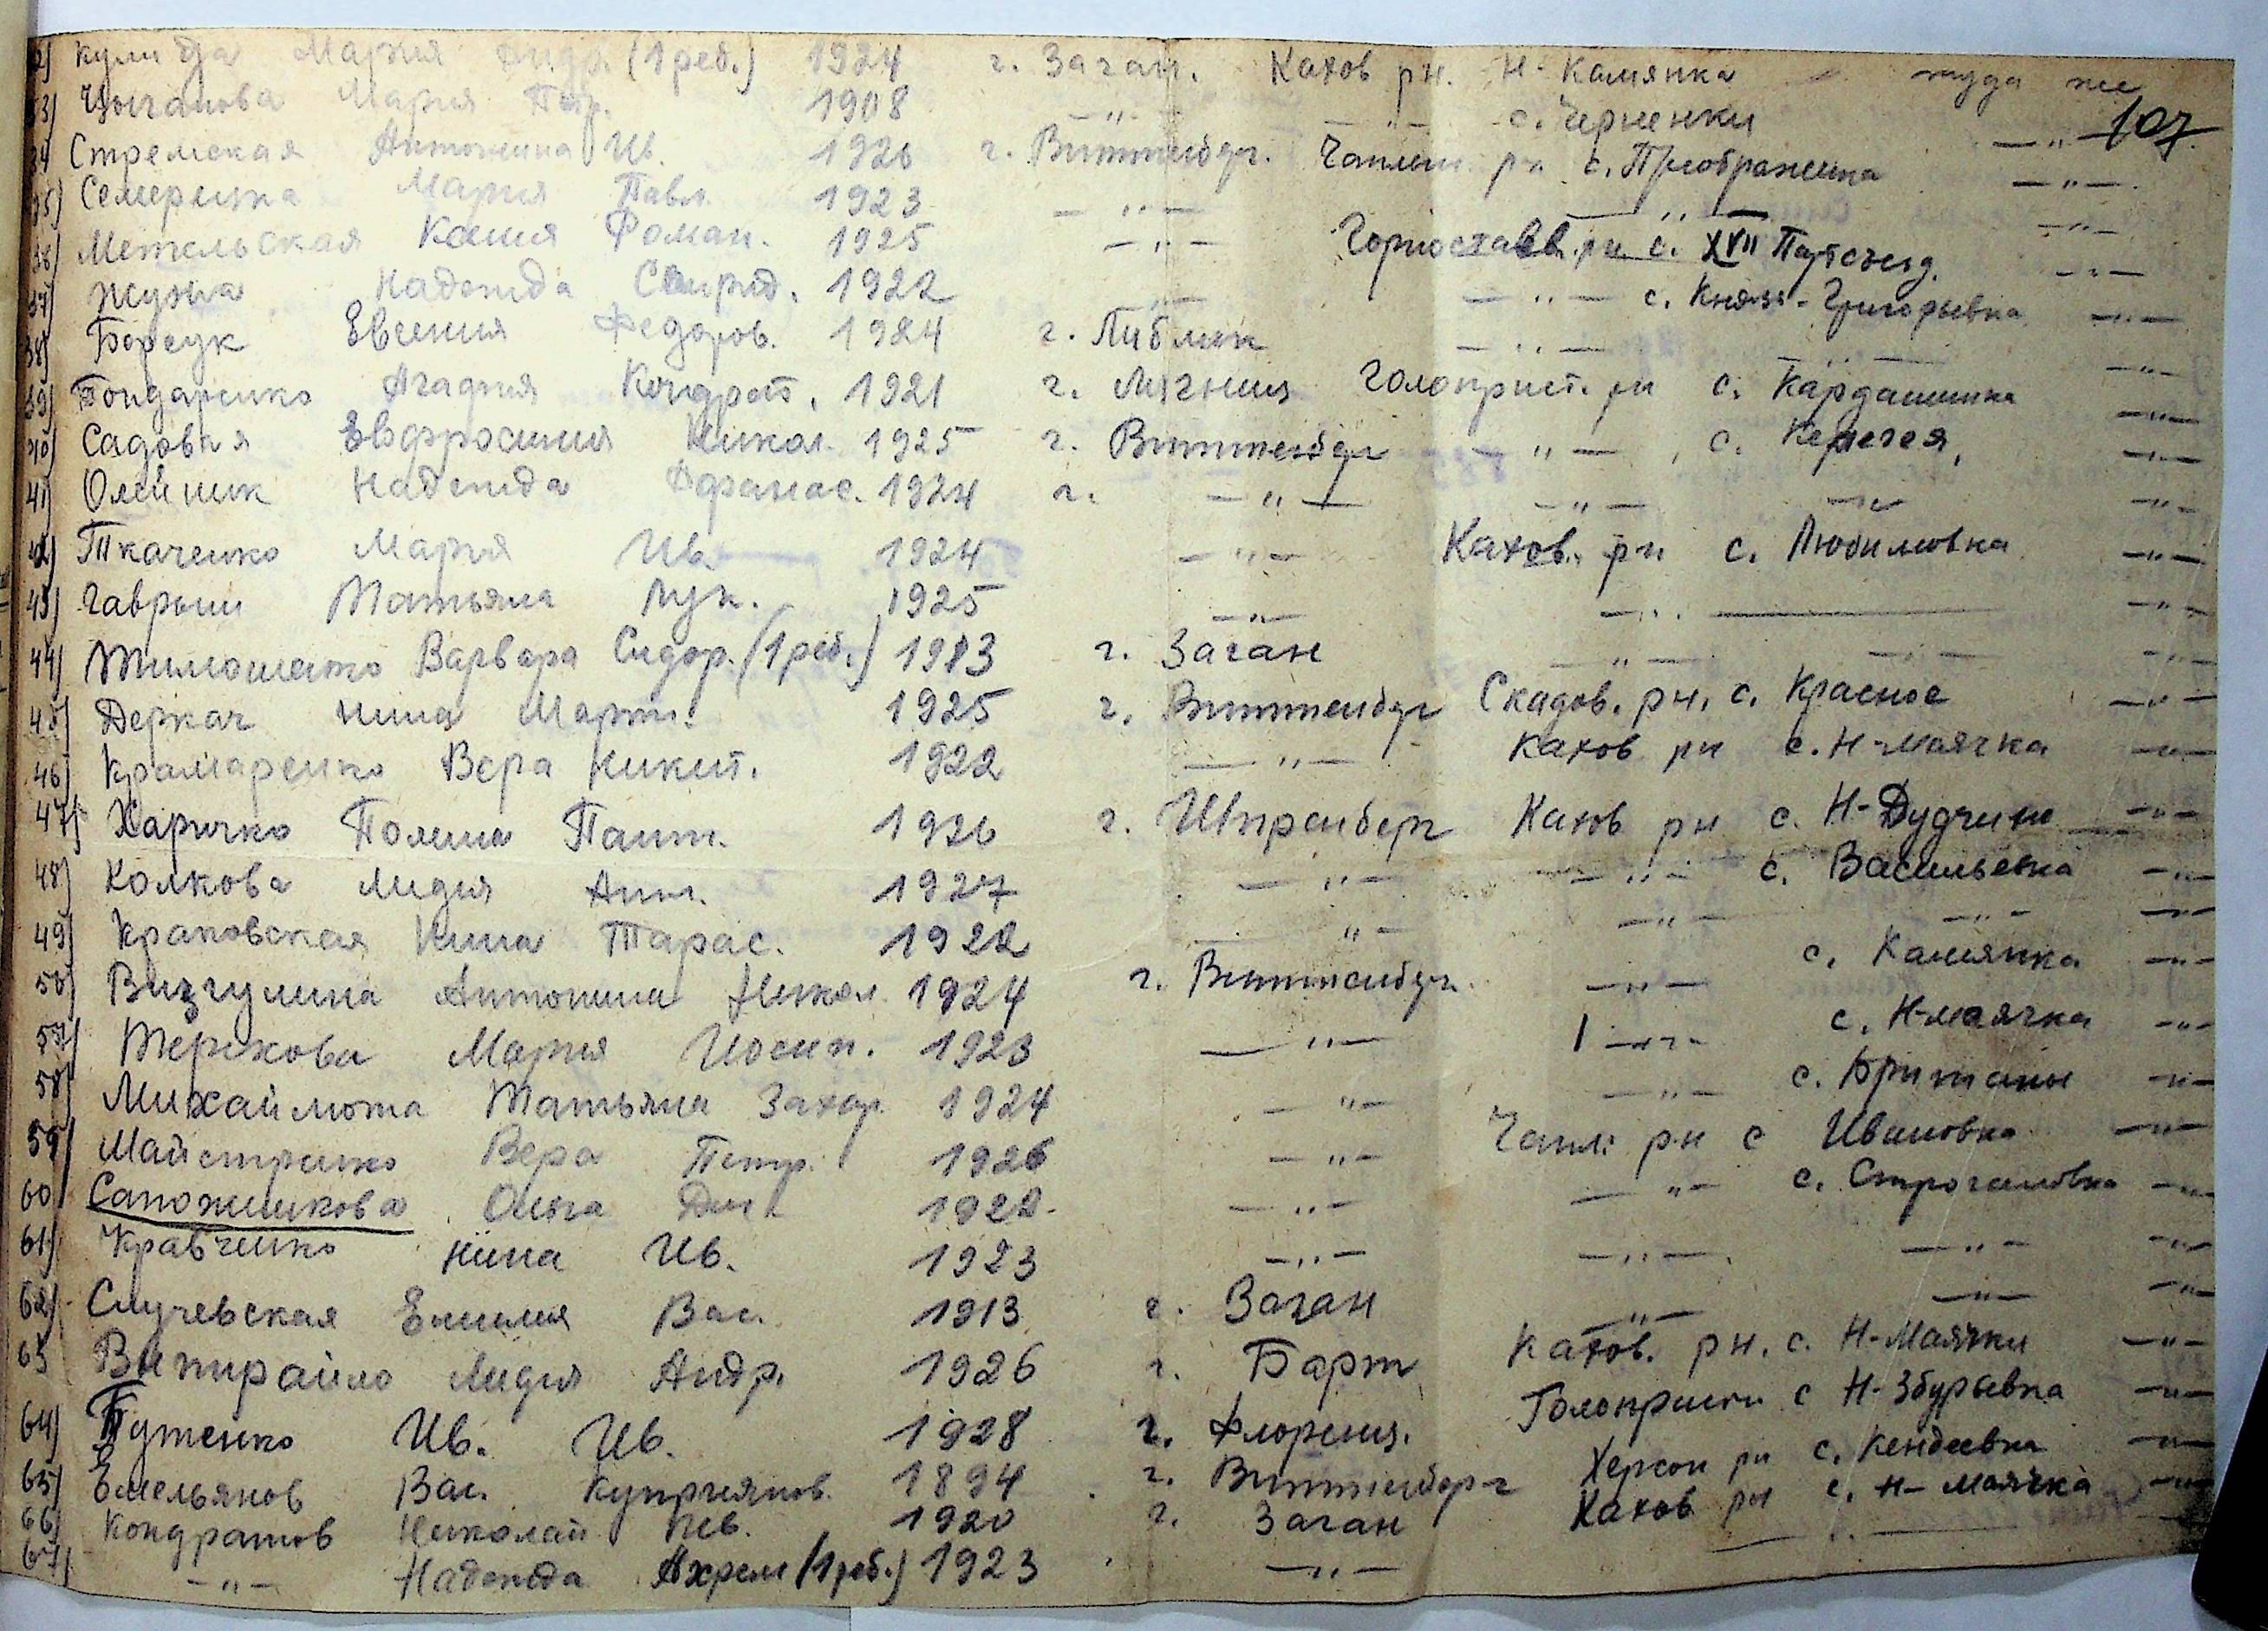 Мария (1 реб.) 1924 г. Заган. Кахов рн. Н-Камянка туда же
33) Цыганова Мария 1908 —„— —„— с. Черненки —„— 107
34 Стремская Антонина Ив. 1926 г. Виттенберг. Чаплин рн с. Преображенка —„—.
35) Мария Павл. 1923 —„— —„— —„—
36) Метельская Ксения Роман. 1925 —„— Горностаев. рн. с. XVII Партсъезд. —„—
37) Надежда Спирид. 1922 —„— —„— с. Князе-Григорьевка —„—
38) Борсук Евгения Федоров. 1924 г. Люблин —„— —„— —„—
39) Бондаренко Агафия Кондрат. 1921 г. Голоприст. рн с. Кардашинка —„—
40) Садовая Евфросиния Никол. 1925 г. Виттенберг —„— , с. —„—
41) Олейник Надежда Афанас. 1924 г. —„— —„— —„— —„—
42) Ткаченко Мария Ив. 1924 —„— Кахов. рн с. Любимовка —„—
43) Гаврыш Татьяна Лук. 1925 —„— —„— —„—
44) Тимошенко Варвара Сидор. (1 реб.) 1913 г. Заган —„— —„— —„—
45) Деркач Нина Март. 1925 г. Виттенберг Скадов. рн. с. Красное —„—
46) Крамаренко Вера Никит. 1922 —„— Кахов рн с. Н-Маячка —„—
47) Харичко Полина Пант. 1926 г. Шпремберг Кахов рн с. Н-Дудчино —„—
48) Колкова Лидия Ант. 1927 —„— —„— с. Васильевка —„—
49) Краковская Нина Тарас. 1922 —„— —„— —„— —„—
50) Визгулина Антонина Никол. 1924 г. Виттенберг. —„— с. Камянка —„—
57) Терехова Мария Иосип. 1923 —„— —„— с. Н-Маячка —„—
58) Михайлюта Татьяна Захар. 1924 —„— —„— с. Британы —„—
59) Майстренко Вера Петр. 1926 —„— Чапл. рн с Ивановка —„—
60) Сапожникова Ольга 1922. —„— —„— с. Строгановка —„—
61) Кравченко Нина Ив. 1923 —„— —„—. —„— —„—
62) Случевская Емилия Вас. 1913 г. Заган —„— —„— —„—
63 Лидия Андр. 1926 г. Барт Кахов. рн. с. Н-Маячки —„—
64) Бутенко Ив. Ив. 1928 г. Флоренц. Голопристн с Н-Збурьевка —„—
65) Емельянов Вас. Куприянов. 1894 г. Виттенберг Херсон рн с. —„—
66) Кондратов Николай 1920 г. Заган Кахов рн с. Н-Маячка —„—
67) —„— Надежда Ахрем (1 реб.) 1923 —„— —„— —„—